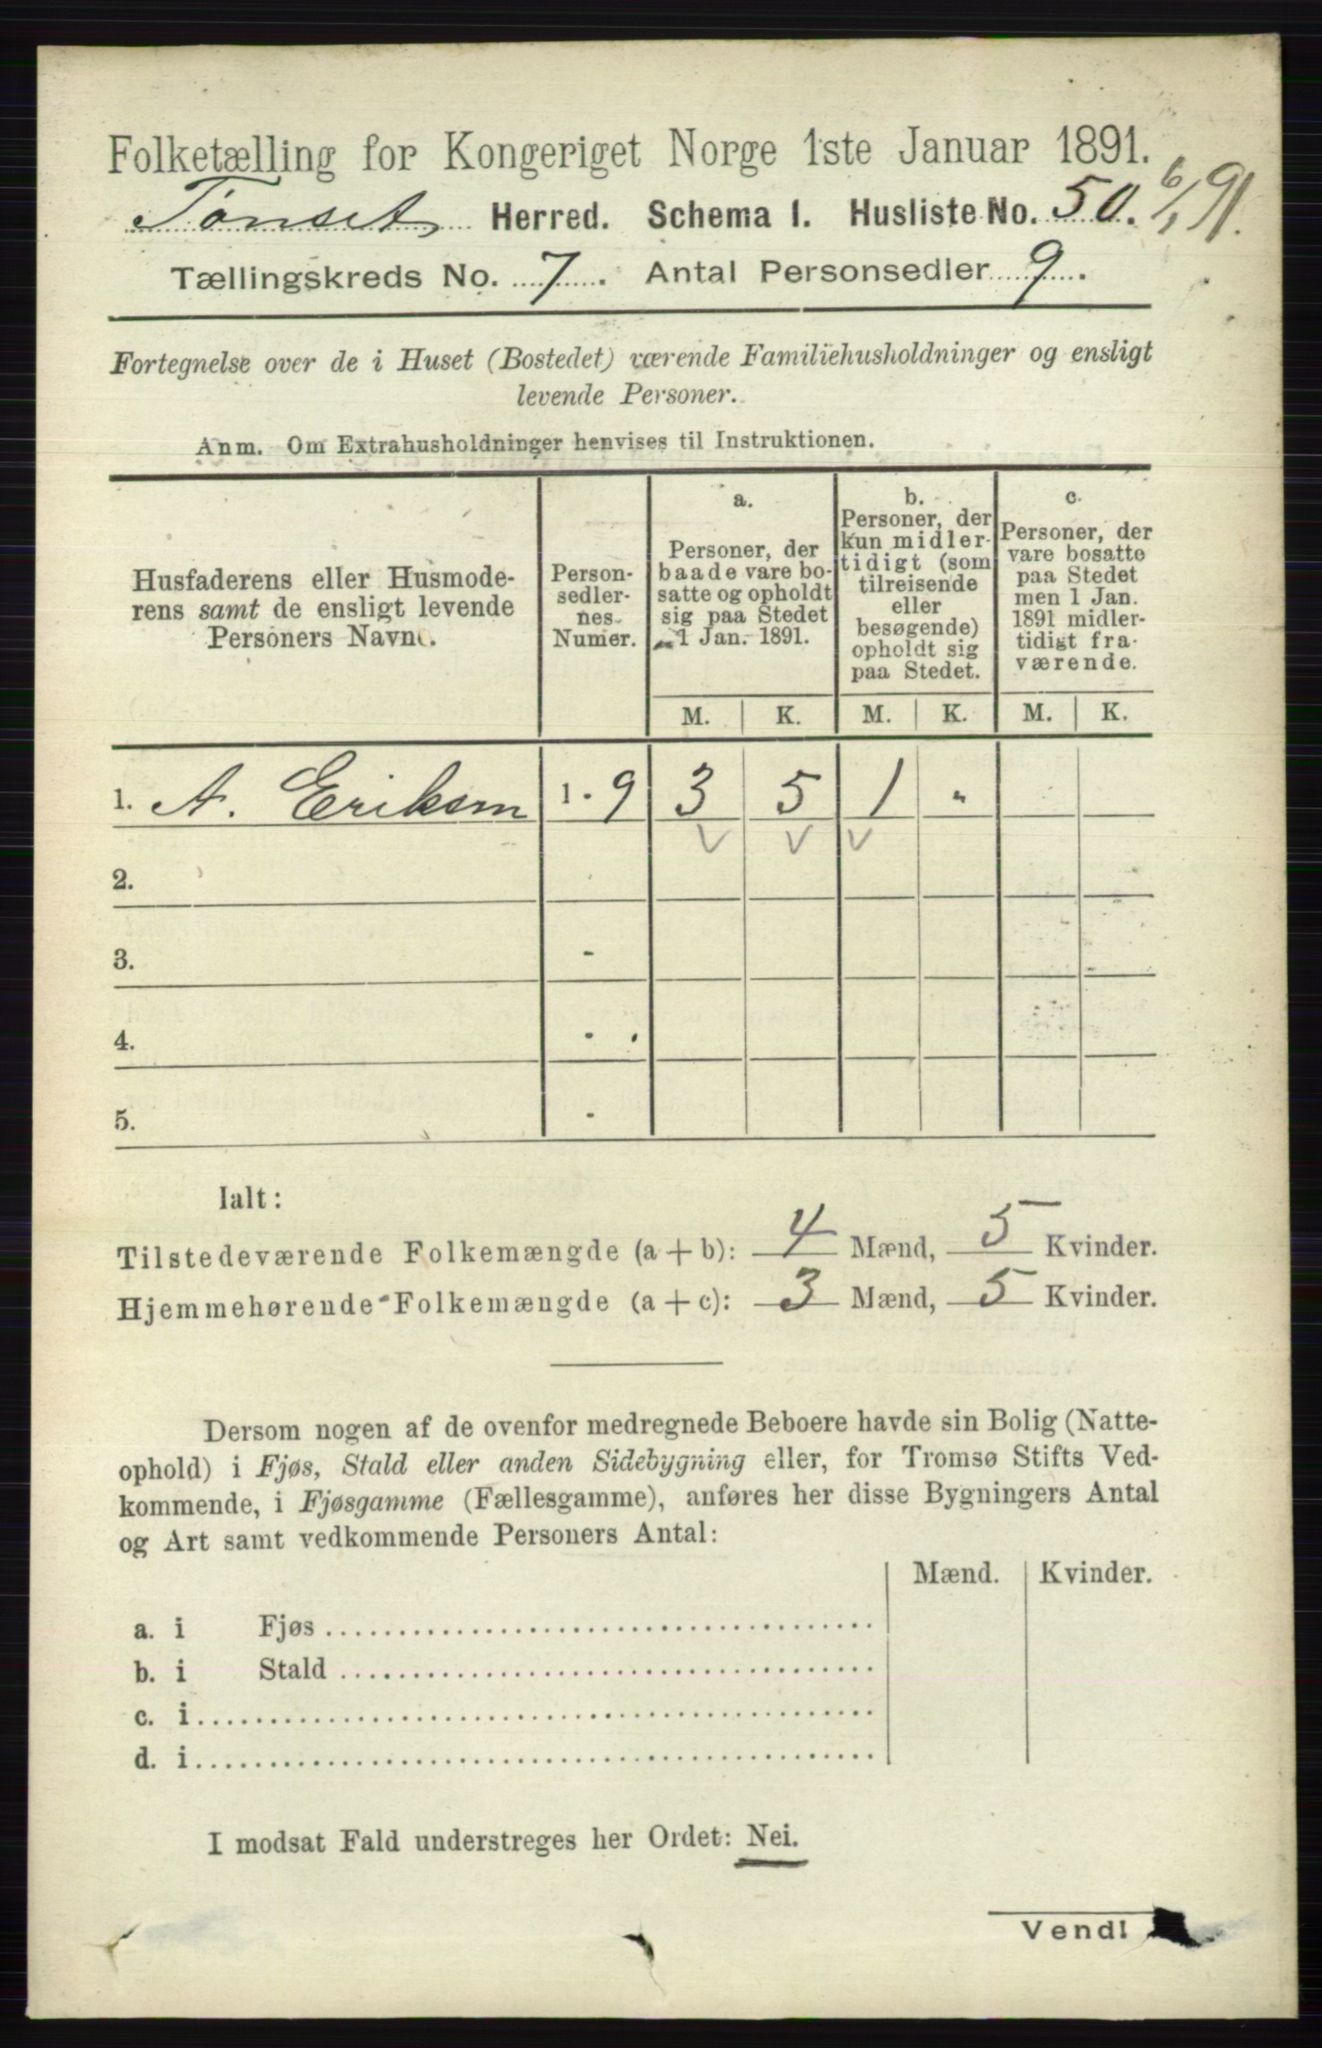 Folketælling for Kongeriget Norge 1ste Januar 1891.
Tønset Herred. Schema 1. Husliste No. 50. 6/1 91.
Tællingskreds No. 7. Antal Personsedler 9.
Fortegnelse over de i Huset (Bostedet) værende Familiehusholdninger og ensligt
levende Personer.
Anm. Om Extrahusholdninger henvises til Instruktionen.
Husfaderens eller Husmode-
rens samt de ensligt levende
Personers Navne.
Person-
sedler-
nes
Numer.
a.
Personer, der
baade vare bo-
satte og opholdt
sig paa Stedet
1 Jan. 1891.
b.
Personer, der
kun midler-
tidigt (som
tilreisende
eller
besøgende)
opholdt sig
paa Stedet.
c.
Personer, der
vare bosatte
paa Stedet
men 1 Jan.
1891 midler-
tidigt fra-
værende.
M. K. M. K. M. K.
1. A. Eriksen 1 - 9 3 5 1 -
2.
3. -
4. -
5. -
Ialt:
Tilstedeværende Folkemængde (a + b): 4 Mænd, 5 Kvinder.
Hjemmehørende Folkemængde (a + c): 3 Mænd, 5 Kvinder.
Dersom nogen af de ovenfor medregnede Beboere havde sin Bolig (Natte-
ophold) i Fjøs, Stald eller anden Sidebygning eller, for Tromsø Stifts Ved-
kommende, i Fjøsgamme (Fællesgamme), anføres her disse Bygningers Antal
og Art samt vedkommende Personers Antal:
Mænd. Kvinder.
a. i Fjøs
b. i Stald
c. i
d. i
I modsat Fald understreges her Ordet: Nei.
Vend!